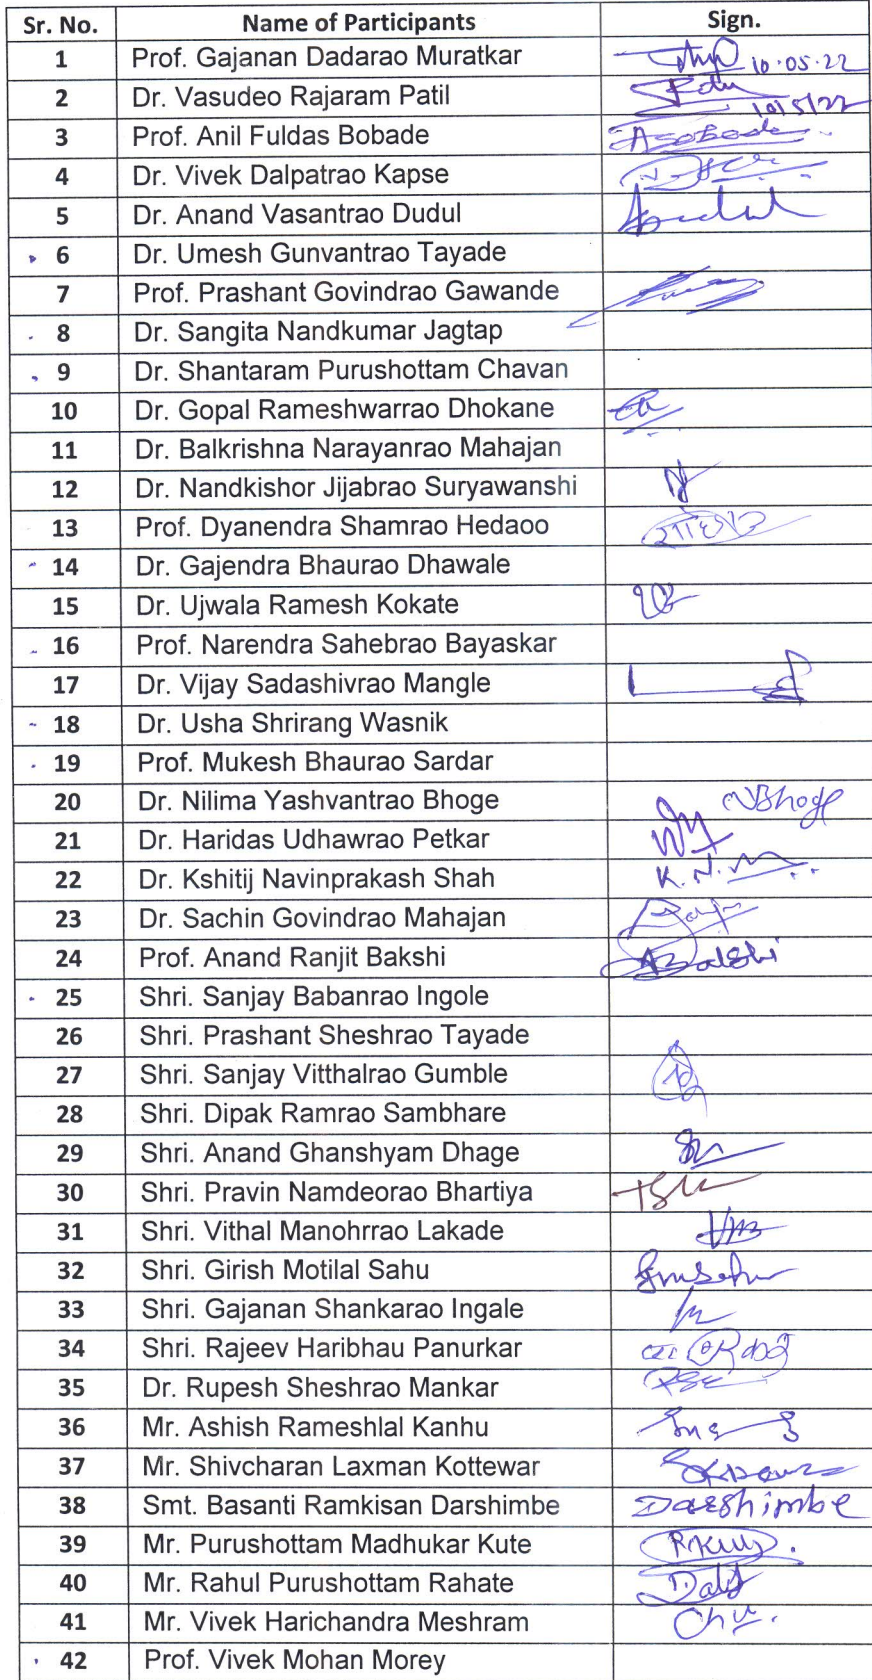 Sr. No. Name of Participants Sign.
1 Prof. Gajanan Dadarao Muratkar 10.05.22
2 Dr. Vasudeo Rajaram Patil 10/5/22
3 Prof. Anil Fuldas Bobade
4 Dr. Vivek Dalpatrao Kapse
5 Dr. Anand Vasantrao Dudul
6 Dr. Umesh Gunvantrao Tayade
7 Prof. Prashant Govindrao Gawande
8 Dr. Sangita Nandkumar Jagtap
9 Dr. Shantaram Purushottam Chavan
10 Dr. Gopal Rameshwarrao Dhokane
11 Dr. Balkrishna Narayanrao Mahajan
12 Dr. Nandkishor Jijabrao Suryawanshi
13 Prof. Dyanendra Shamrao Hedaoo
14 Dr. Gajendra Bhaurao Dhawale
15 Dr. Ujwala Ramesh Kokate
16 Prof. Narendra Sahebrao Bayaskar
17 Dr. Vijay Sadashivrao Mangle
18 Dr. Usha Shrirang Wasnik
19 Prof. Mukesh Bhaurao Sardar
20 Dr. Nilima Yashvantrao Bhoge NBhoge
21 Dr. Haridas Udhawrao Petkar
22 Dr. Kshitij Navinprakash Shah K.N.
23 Dr. Sachin Govindrao Mahajan
24 Prof. Anand Ranjit Bakshi ABakshi
25 Shri. Sanjay Babanrao Ingole
26 Shri. Prashant Sheshrao Tayade
27 Shri. Sanjay Vitthalrao Gumble
28 Shri. Dipak Ramrao Sambhare
29 Shri. Anand Ghanshyam Dhage
30 Shri. Pravin Namdeorao Bhartiya
31 Shri. Vithal Manohrrao Lakade
32 Shri. Girish Motilal Sahu
33 Shri. Gajanan Shankarao Ingale
34 Shri. Rajeev Haribhau Panurkar
35 Dr. Rupesh Sheshrao Mankar
36 Mr. Ashish Rameshlal Kanhu
37 Mr. Shivcharan Laxman Kottewar
38 Smt. Basanti Ramkisan Darshimbe Darshimbe
39 Mr. Purushottam Madhukar Kute
40 Mr. Rahul Purushottam Rahate
41 Mr. Vivek Harichandra Meshram
42 Prof. Vivek Mohan Morey